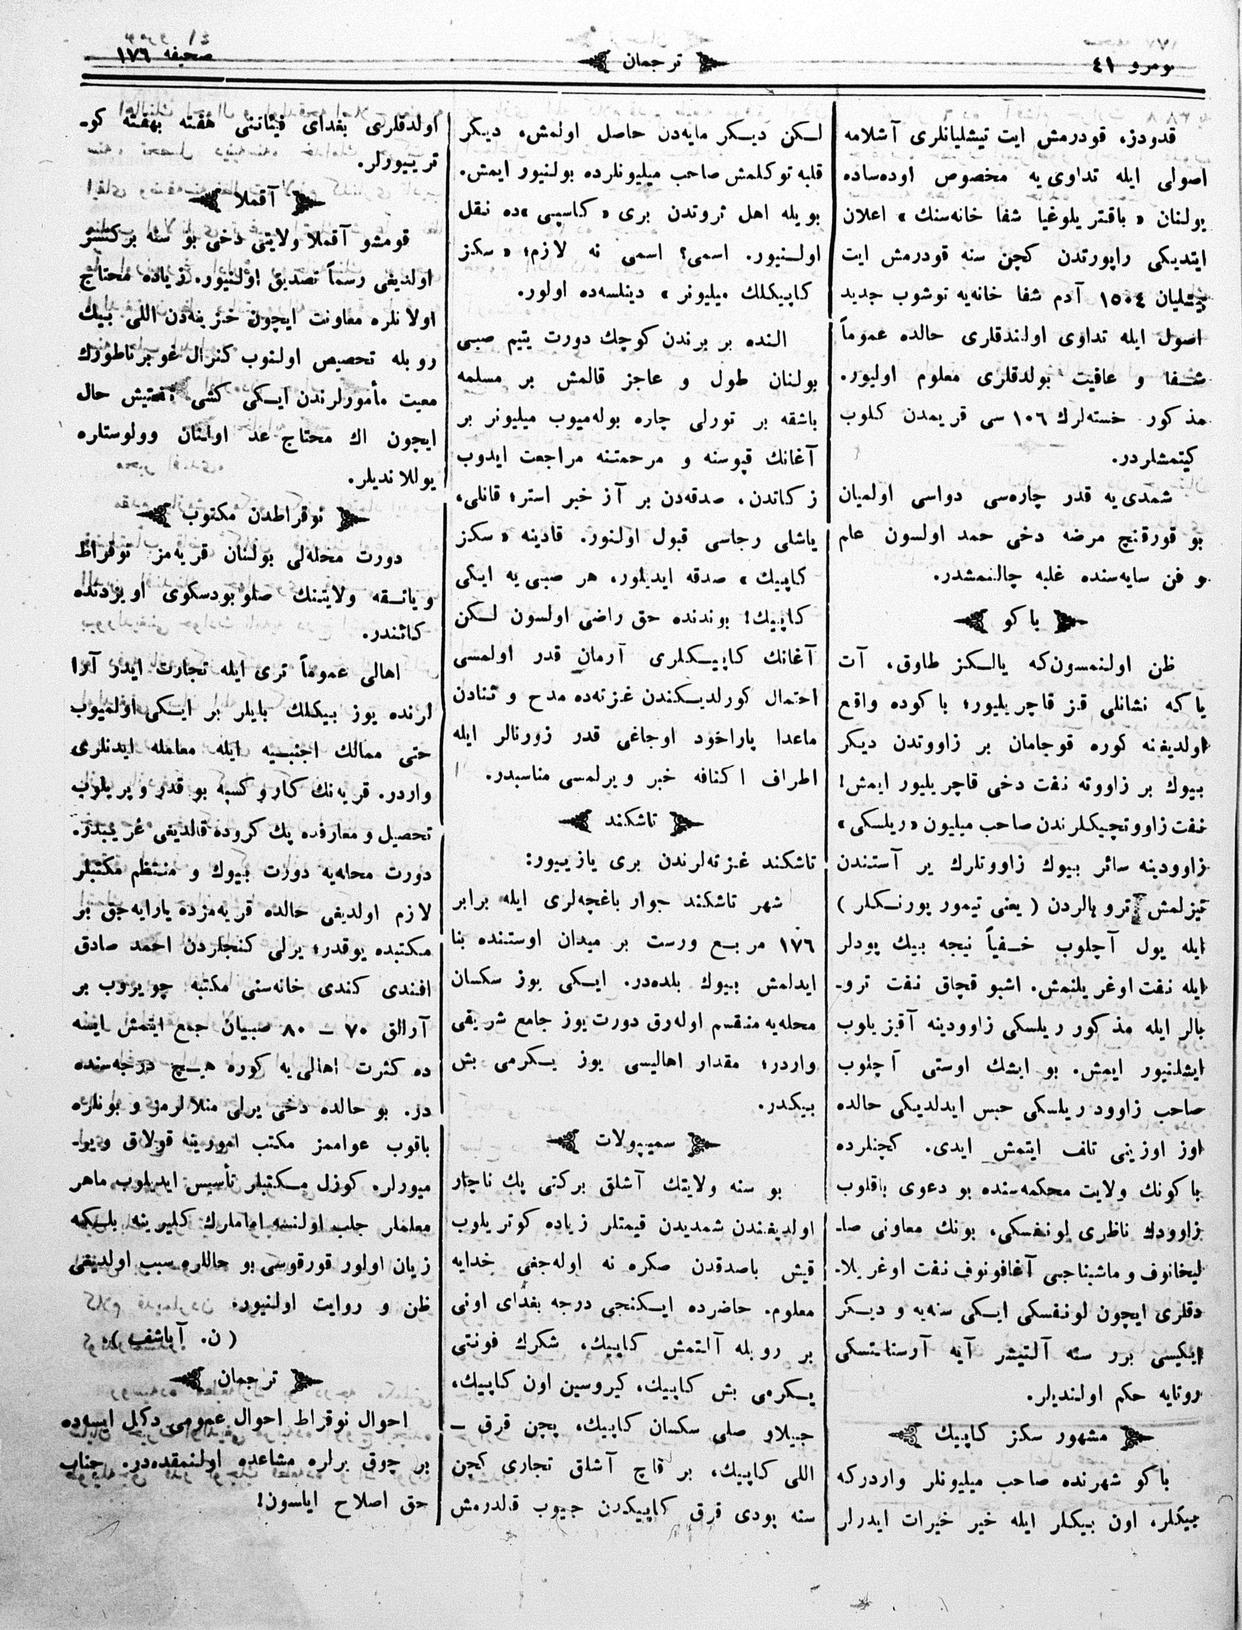 نومرو ٤١
ترجمان
صحیفه ١٧٦
قدودز، قودرمش ایت تیشلیانلری آشلامه
اصولی ایله تداوی یه مخصوص اوده‌ساده
بولنان « باقتریلوغیا شفا خانه‌سنك » اعلان
ایتدیکی راپورتدن کچن سنه قودرمش ایت
تیشلیان ١٥٠٤ آدم شفا خانه‌یه توشوب جدید
اصول ایله تداوی اولندقلری حالده عموماً
شفا و عافیت بولدقلری معلوم اولیور.
مذکور خسته‌لرك ١٠٦ سی قریمدن کلوب
کیتمشلردر.
شمدی یه قدر چاره‌سی دواسی اولمیان
بو قورقنچ مرضه دخی حمد اولسون عام
و فن سایه‌سنده غلبه چالنمشدر.
باکو
ظن اولنمسون‌که یالکز طاوق، آت
یاکه نشانلی قز قاچریلیور؛ باکوده واقع
اولدیغنه کوره قوجامان بر زاووتدن دیکر
بیوك بر زاووته نفت دخی قاچریلیور ایمش!
نفت زاووتچیکلرندن صاحب میلیون « ریلسکی »
زاوودینه سائر بیوك زاووتلرك یر آستندن
تیزلمش ترو بالردن ( یعنی تیمور یورنکلر )
ایله یول آچلوب خفیاً نیجه بیك پودلر
ایله نفت اوغریلنمش. اشبو قچاق نفت ترو-
بالر ایله مذکور ریلسکی زاوودینه آقیزیلوب
ایشلنیور ایمش. بو ایشك اوستی آچلوب
صاحب زاوود ریلسکی حبس ایدلدیکی حالده
اوز اوزینی تلف ایتمش ایدی. کچنلرده
باکونك ولایت محکمه‌سنده بو دعوی باقلوب
زاوودك ناظری لونفسکی، بونك معاونی صا-
لیخانوف و ماشیناجیی آغافونوف نفت اوغریلا-
دقلری ایچون لونفسکی ایکی سنه‌یه و دیکر
ایکیسی برر سنه آلتیشر آیه آرستانتسکی
روتایه حکم اولندیلر.
مشهور سکز کاپیك
باکو شهرنده صاحب میلیونلر واردرکه
بیکلر، اون بیکلر ایله خیر خیرات ایدرلر
لکن دیکر مایه‌دن حاصل اولمش، دیکر
قلبه توکلمش صاحب میلیونلرده بولنیور ایمش.
بویله اهل ثروتدن بری « کاسپی »ده نقل
اولنیور. اسمی؟ اسمی نه لازم؛ « سکز
کاپیکلك میلیونر » دینلسه‌ده اولور.
النده بر برندن کوچك دورت یتیم صبی
بولنان طول و عاجز قالمش بر مسلمه
باشقه بر تورلی چاره بوله‌میوب میلیونر بر
آغانك قپوسنه و مرحمتنه مراجعت ایدوب
زکاتدن، صدقه‌دن بر آز خبر استر؛ قانلی،
یاشلی رجاسی قبول اولنور. قادینه « سکز
کاپیك » صدقه ایدیلور. هر صبی یه ایکی
کاپیك! بوندنده حق راضی اولسون لکن
آغانك کاپیکلری آرمان قدر اولمسی
احتمال کورلدیکندن غزته‌ده مدح و ثنادن
ماعدا یاراخود اوجاغی قدر زورنالر ایله
اطراف اکنافه خبر ویرلمسی مناسبدر.
تاشکند
تاشکند غزته‌لرندن بری یازییور:
شهر تاشکند جوار باغچه‌لری ایله برابر
١٧٦ مربع ورست بر میدان اوستنده بنا
ایدلمش بیوك بلده‌در. ایکی یوز سکسان
محله‌یه منقسم اوله‌رق دورت یوز جامع شریفی
واردر؛ مقدار اهالیسی یوز یکرمی بش
بیکدر.
سمیپولات
بو سنه ولایتك آشلق برکتی پك ناچار
اولدیغندن شمدیدن قیمتلر زیاده کوتریلوب
قیش باصدقدن صکره نه اوله‌جغی خدایه
معلوم. حاضرده ایکنجی درجه بغدای اونی
بر روبله آلتمش کاپیك، شکرك فونتی
یکرمی بش کاپیك، کیروسین اون کاپیك،
جیلاو صلی سکسان کاپیك، پچن قرق –
اللی کاپیك، بر قاچ آشلق تجاری کچن
سنه پودی قرق کاپیکدن جیوب قالدرمش
اولدقلری بغدای فیئاتنی هفته بهفته کو-
ترییورلر.
آقملا
قومشو آقملا ولایتی دخی بو سنه برکتسز
اولدیغی رسماً تصدیق اولنیور. زیاده محتاج
اولانلره معاونت ایچون خزینه‌دن اللی بیك
روبله تخصیص اولنوب کنرال غوبرناطورك
معیت مأمورلرندن ایکی کشی تفتیش حال
ایچون اك محتاج عد اولنان وولوستلره
یوللاندیلر.
نوقراطدن مکتوب
دورت محله‌لی بولنان قریه‌مز نوقراط
ویاتقه ولایتنك صلوبودسکوی اویزدنده
کائندر.
اهالی عموماً تری ایله تجارت ایدر آرا
لرنده یوز بیکلك بایلر بر ایکی اولمیوب
حتی ممالك اجنبیه ایله معامله ایدنلری
واردر. قریه‌نك کار و کسبه بو قدر ویریلوب
تحصیل و معارفده پك کروده قالدیغی غریبدر.
دورت محله‌یه دورت بیوك و منتظم مکتبلر
لازم اولدیغی حالده قریه‌مزده یارایه‌جق بر
مکتبده یوقدر؛ یرلی کنجلردن احمد صادق
افندی کندی خانه‌سنی مکتبه چویروب بر
آرالق ٧٠ – ٨٠ صبیان جمع ایتمش ایسه
ده کثرت اهالی یه کوره هیچ درجه‌سنده
در. بو حالده دخی یرلی منلالرمز و بونلره
باقوب عواممز مکتب امورینه قولاق ویر-
میورلر. کوزل مکتبلر تأسیس ایدیلوب ماهر
معلملر جلب اولنسه اماملرك کلیرینه بلکه
زیان اولور قورقوسی بو حاللره سبب اولدیغی
ظن و روایت اولنیور.
( ن. آیاشف )
ترجمان
احوال نوقراط احوال عمومی دکل ایسه‌ده
بر چوق یرلره مشاعده اولنمقده‌در. جناب
حق اصلاح ایلسون!